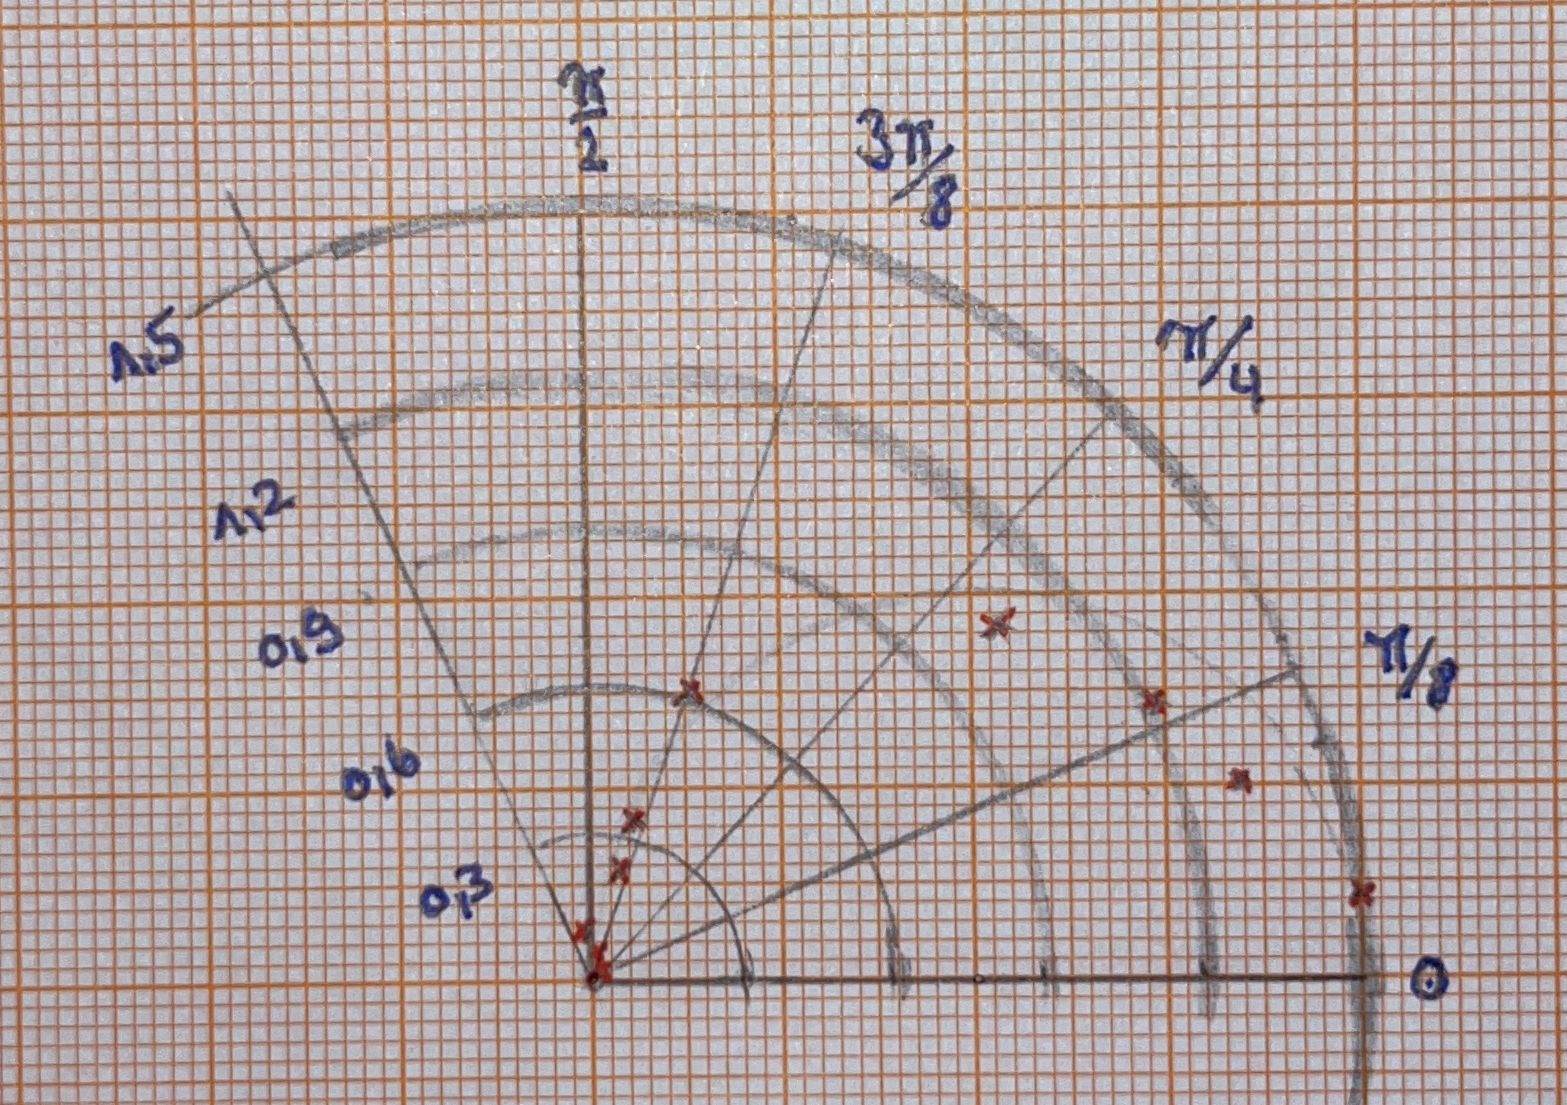 π/2
3π/8
π/4
1,5
1,2
0,9
π/8
0,6
0,3
0